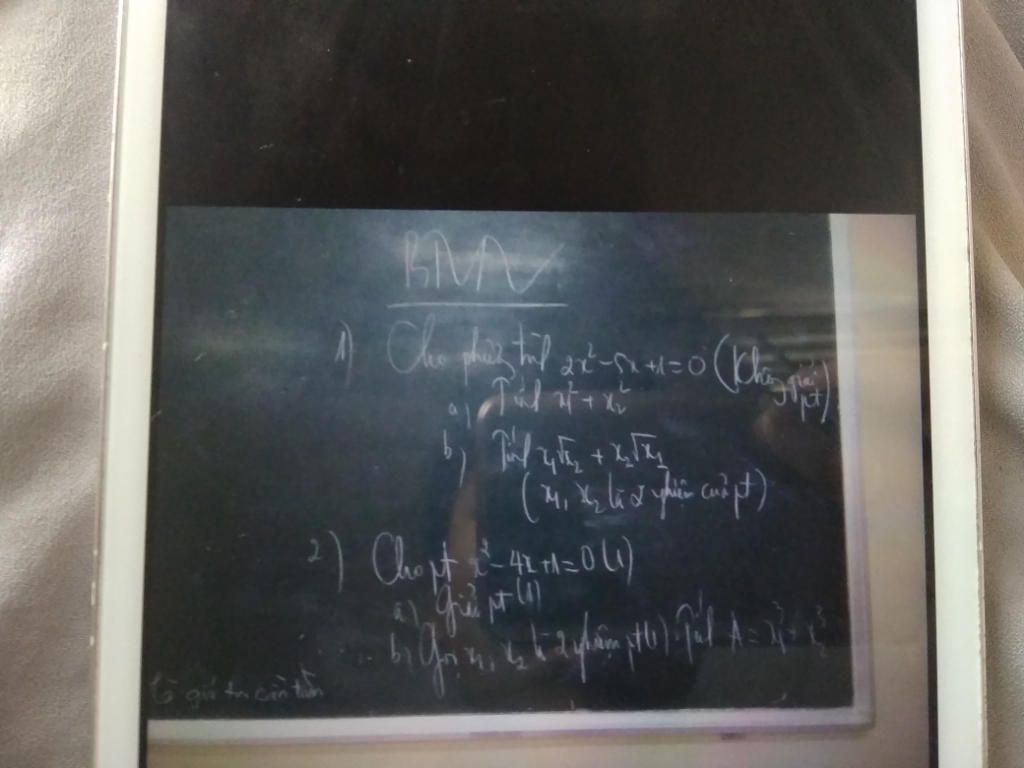 BTVN
1) Cho phương trình 2x² - 5x + 1 = 0 (Không giải pt)
a) Tính x₁² + x₂²
b) Tính x₁√x₂ + x₂√x₁
(x₁, x₂ là 2 nghiệm của pt)
2) Cho pt x² - 4x + 1 = 0 (1)
a) Giải pt (1)
b) Gọi x₁, x₂ là 2 nghiệm pt (1). Tính A = x₁³ + x₂³
giá trị cần tìm